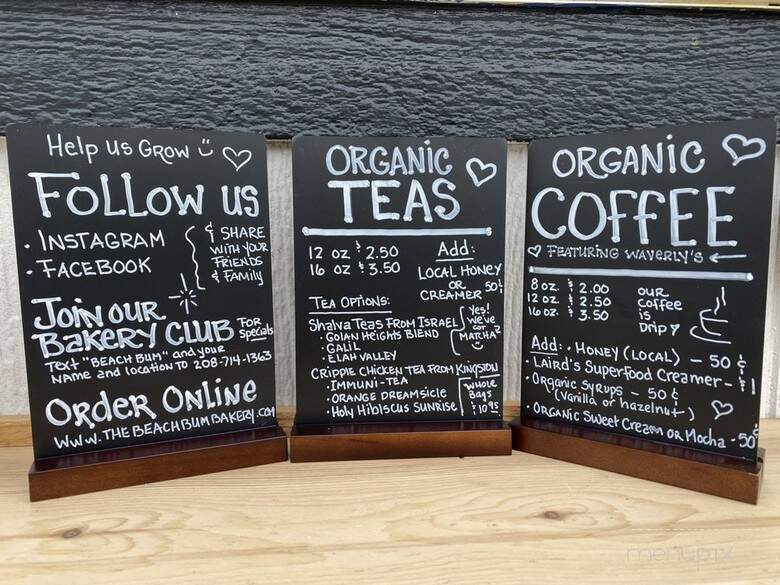 Help us Grow
FOLLOW us
• INSTAGRAM
• FACEBOOK
& SHARE
WITH YOUR
FRIENDS
& Family
JOIN OUR
BAKERY CLUB FOR Specials
Text "BEACH BUM" and your
Name and location TO 208-714-1363
Order Online
WWW.THEBEACHBUMBAKERY.COM
ORGANIC
TEAS
12 oz $ 2.50
16 oz $ 3.50
Add:
LOCAL HONEY
OR 50¢
CREAMER
TEA OPTIONS:
Shalva Teas From Israel
• GOLAN HEIGHTS BLEND
• GALIL
• ELAH VALLEY
Yes!
we've
GOT
MATCHA
CRIPPLE CHICKEN TEA FROM KINGSTON
• IMMUNI-TEA
• ORANGE DREAMSICLE
• Holy Hibiscus SUNRISE
WHOLE
Bags
$10.95
ORGANIC
COFFEE
FEATURING WAVERLY'S
8 oz. $ 2.00
12 oz $ 2.50
16 oz. $ 3.50
OUR
Coffee
is
Drip
Add: • HONEY (LOCAL) - 50¢
• Laird's Superfood Creamer - $1
• Organic Syrups - 50¢
(Vanilla or hazelnut)
• ORGANIC Sweet Cream OR Mocha - 50¢
menupix